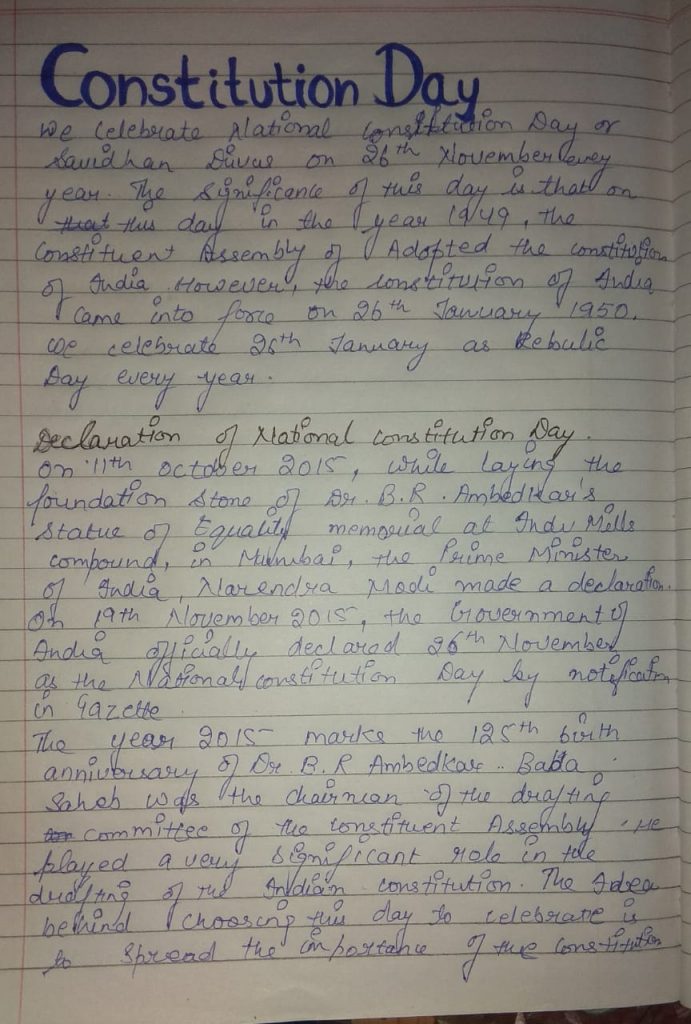 Constitution Day
We celebrate National Constitution Day or
Savidhan Divas on 26th November every
year. The Significance of this day is that on
that this day in the year 1949, the
Constituent Assembly of Adopted the constitution
of India. However, the constitution of India
came into force on 26th January 1950.
We celebrate 26th January as Rebulic
Day every year.
Declaration of National constitution Day.
On 11th October 2015, while laying the
foundation stone of Dr. B.R. Ambedkar's
Statue of Equality memorial at Indu Mills
compound, in Mumbai, the Prime Minister
of India, Narendra Modi made a declaration.
On 19th November 2015, the Government of
India officially declared 26th November
as the National constitution Day by notification
in Gazette
The year 2015 marks the 125th birth
anniversary of Dr. B.R Ambedkar.. Baba
Saheb was the chairman of the drafting
committee of the constituent Assembly. He
played a very significant role in the
drafting of the Indian constitution. The Idea
behind choosing this day to celebrate is
to spread the importance of the constitution